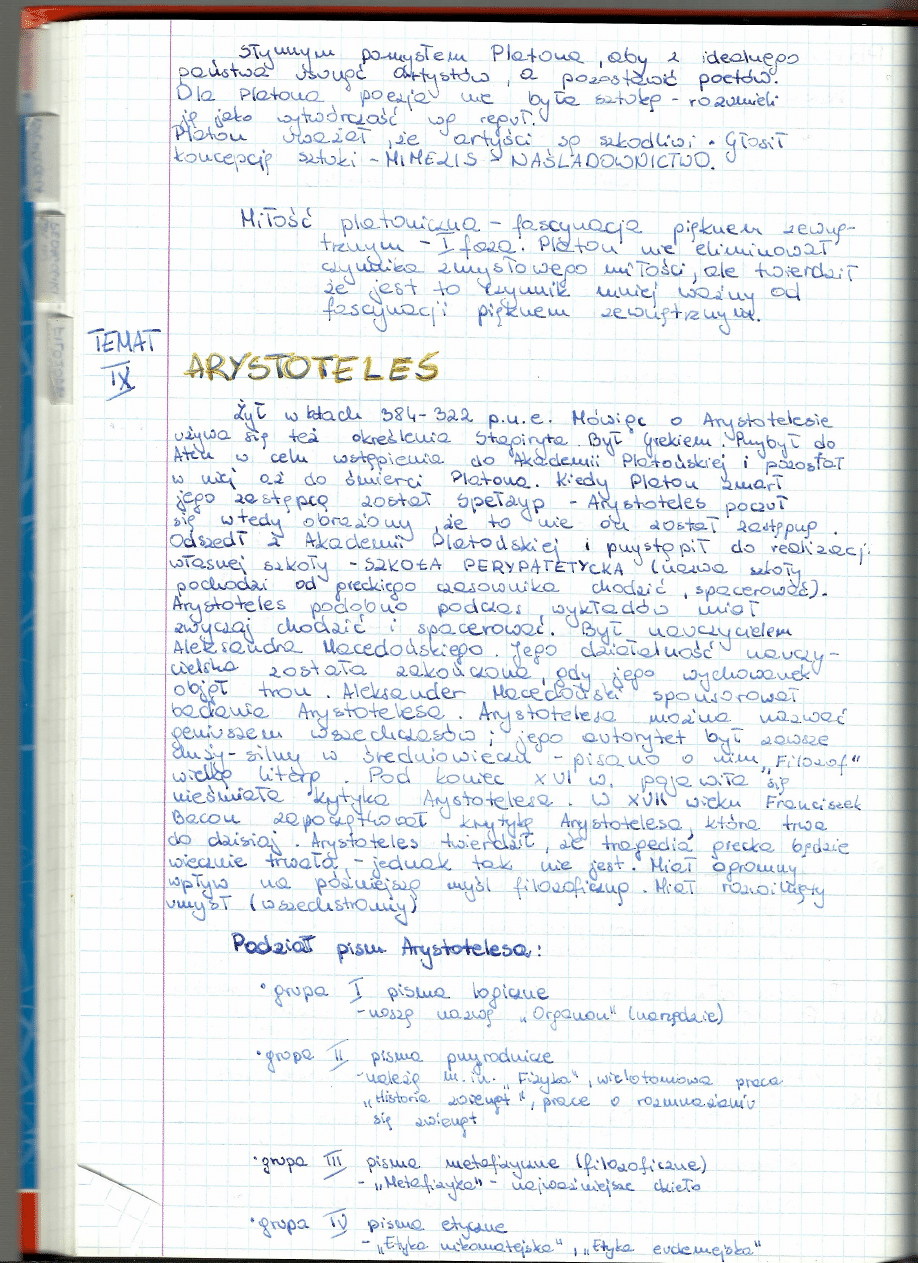 Słynnym pomysłem Platona, aby z idealnego
państwa usunąć artystów, a pozostawić poetów.
Dla Platona poezja nie była sztuką - rozumieli
ją jako wytwórczość wg reguł.
Platon uważał, że artyści są szkodliwi. Głosił
koncepcję sztuki - MIMEZIS NAŚLADOWNICTWO.
Miłość platoniczna - fascynacja pięknem zewnę-
trznym - I faza. Platon nie eliminował
czynnika zmysłowego miłości, ale twierdził
że jest to czynnik mniej ważny od
fascynacji pięknem zewnętrznym.
TEMAT
IX
ARYSTOTELES
Żył w latach 384-322 p.n.e. Mówiąc o Arystotelesie
używa się też określenia Stagiryta. Był grekiem. Przybył do
Aten w celu wstąpienia do Akademii Platońskiej i pozostał
w niej aż do śmierci Platona. Kiedy Platon zmarł
jego zastępcą został Speuzyp - Arystoteles poczuł
się wtedy obrażony, że to nie on został zastępcą.
Odszedł z Akademii Platońskiej i przystąpił do realizacji
własnej szkoły - SZKOŁA PERYPATETYCKA (nazwa szkoły
pochodzi od greckiego czasownika chodzić, spacerować).
Arystoteles podobno podczas wykładów miał
zwyczaj chodzić i spacerować. Był nauczycielem
Aleksandra Macedońskiego. Jego działalność nauczy-
cielska została zakończona, gdy jego wychowanek
objął tron. Aleksander Macedoński sponsorował
badania Arystotelesa. Arystotelesa można nazwać
geniuszem wszechczasów; jego autorytet był zawsze
silny w średniowieczu - pisano o nim „Filozof"
wielką literą. Pod koniec XVI w. pojawiła się
nieśmiała krytyka Arystotelesa. W XVII wieku Franciszek
Bacon zapoczątkował krytykę Arystotelesa, która trwa
do dzisiaj. Arystoteles twierdził, że tragedia grecka będzie
wiecznie trwała - jednak tak nie jest. Miał ogromny
wpływ na późniejszą myśl filozoficzną. Miał rozwinięty
umysł (wszechstronny)
Podział pism Arystotelesa:
• grupa I pisma logiczne
- noszą nazwę „Organon" (narzędzie)
• grupa II pisma przyrodnicze
- należą m.in. „Fizyka", wielotomowa praca
„Historia zwierząt", prace o rozmnażaniu
się zwierząt
• grupa III pisma metafizyczne (filozoficzne)
- „Metafizyka" - najważniejsze dzieło
• grupa IV pisma etyczne
- „Etyka nikomatejska", „Etyka eudemejska"